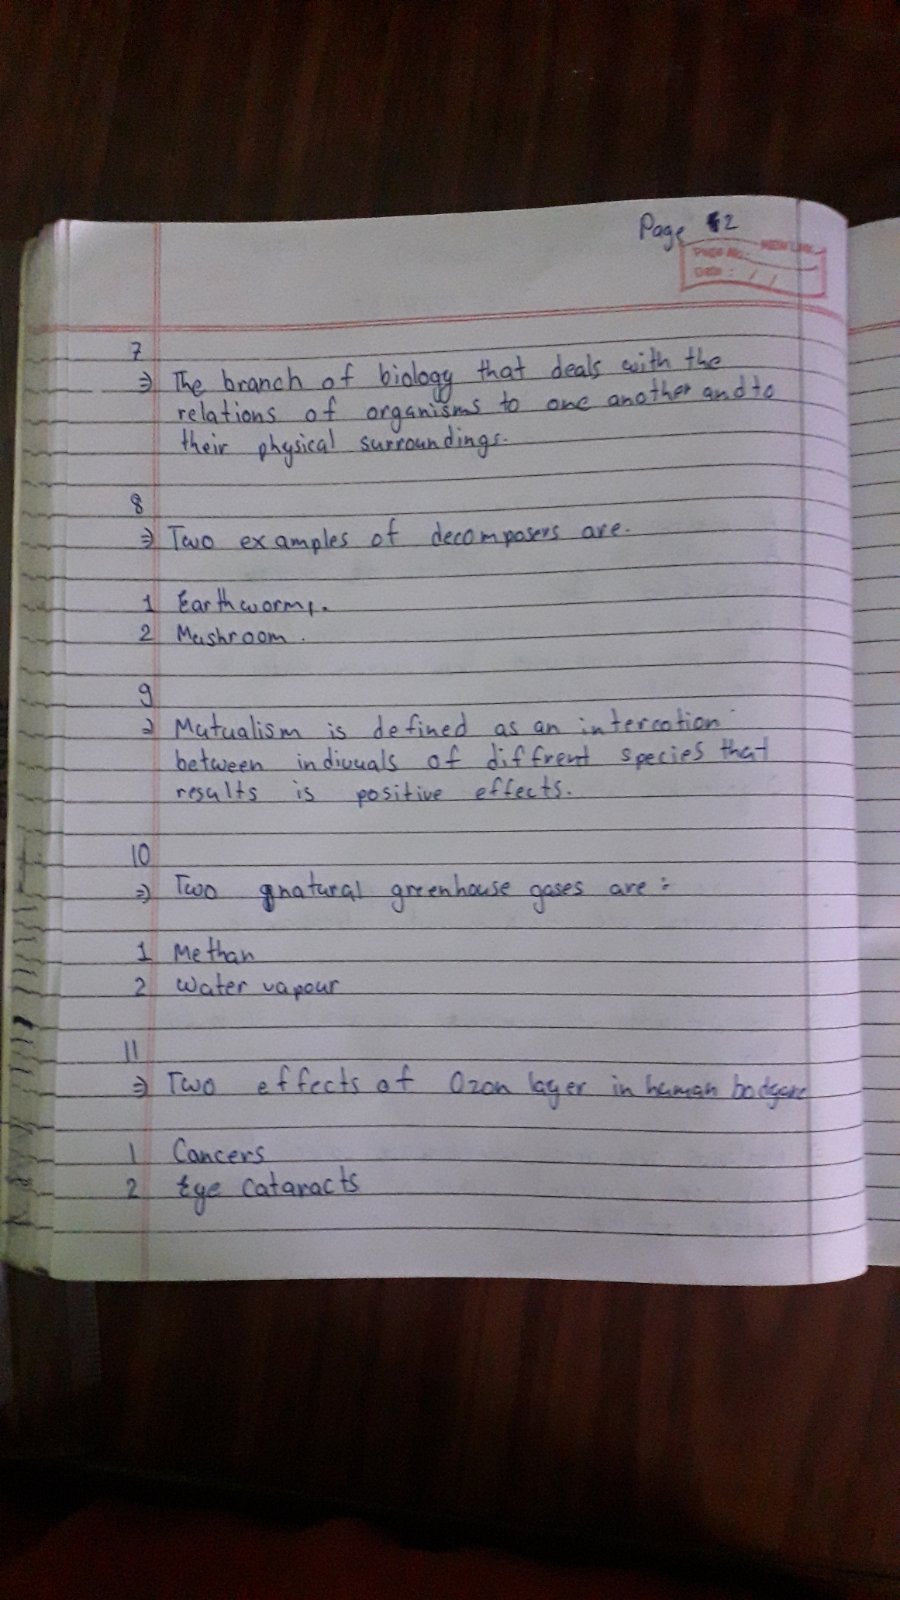 Page 2
Page No.:
Date: / /
7
⇒ The branch of biology that deals with the
relations of organisms to one another and to
their physical surroundings.
8
⇒ Two examples of decomposers are.
1 Earthworms.
2 Mushroom.
9
⇒ Mutualism is defined as an intercation
between indivuals of diffrent species that
results is positive effects.
10
⇒ Two natural greenhouse gases are :
1 Methan
2 Water vapour
11
⇒ Two effects of Ozon layer in human body are
1 Cancers
2 Eye Cataracts